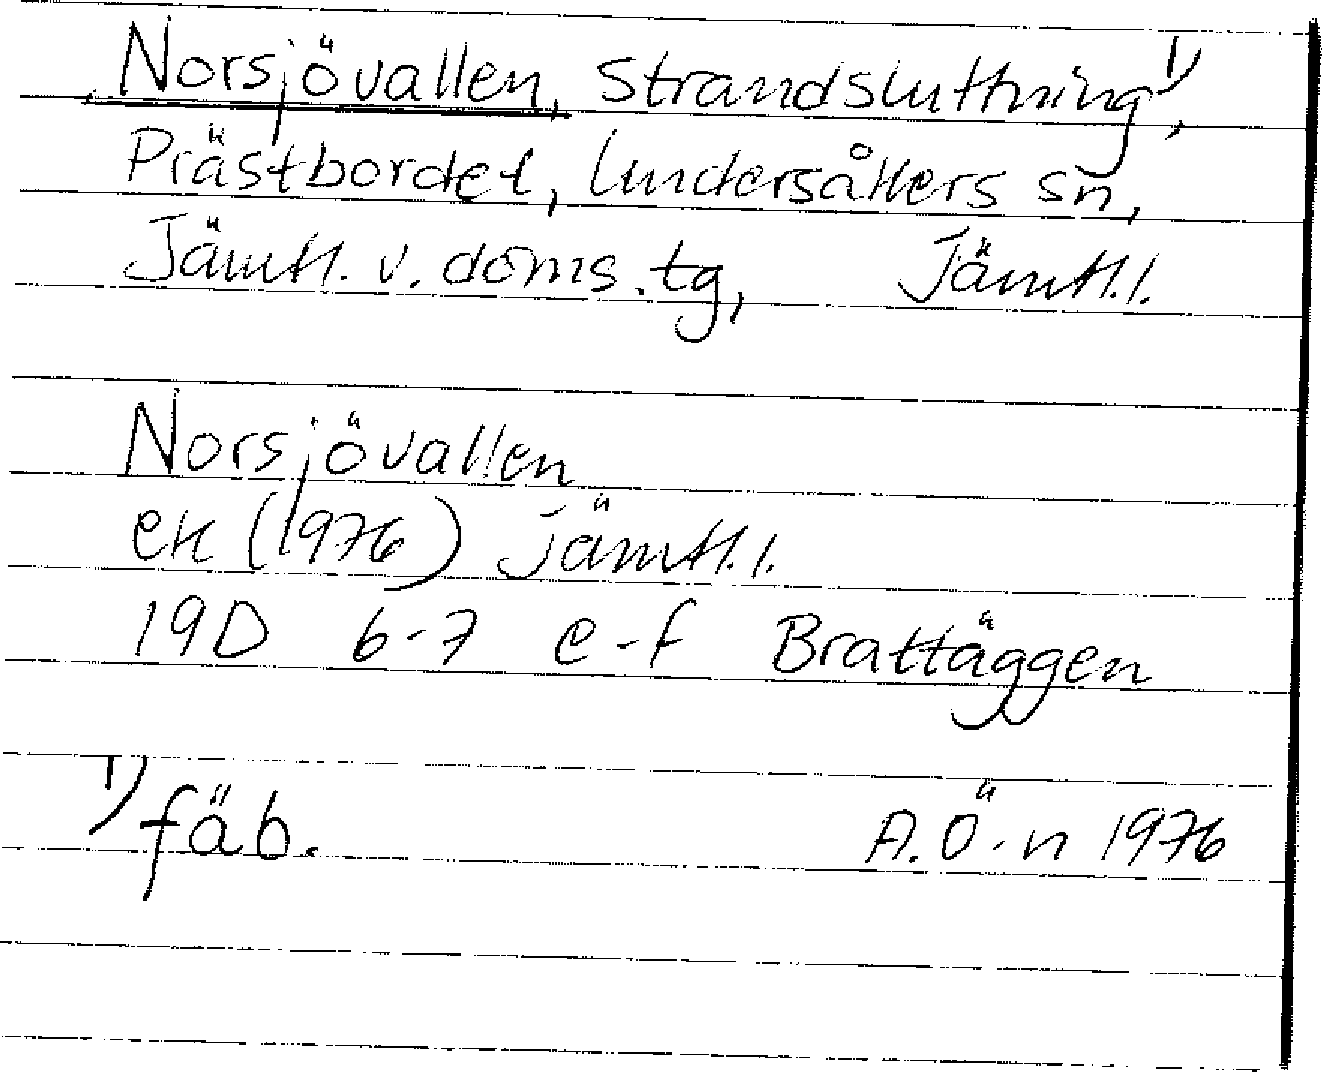 Norsjövallen, strandsluttning¹⁾,
Prästbordet, Undersåkers sn,
Jämtl. v. doms.tg, Jämtl.l.
Norsjövallen
ek (1976) Jämtl.l.
19D 6-7 e-f Brattäggen
¹⁾ fäb. A.Ö-n 1976